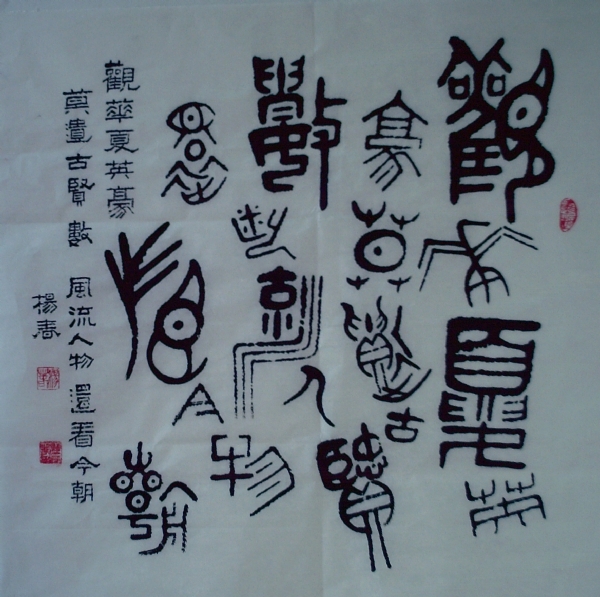 觀華夏英
豪莫遺古賢
數風流人物
還看今朝
觀華夏英豪
莫遺古賢 數風流人物 還看今朝
楊春